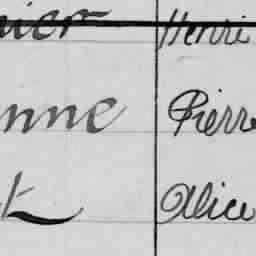 nier Henri
nne Pierre
t Alice